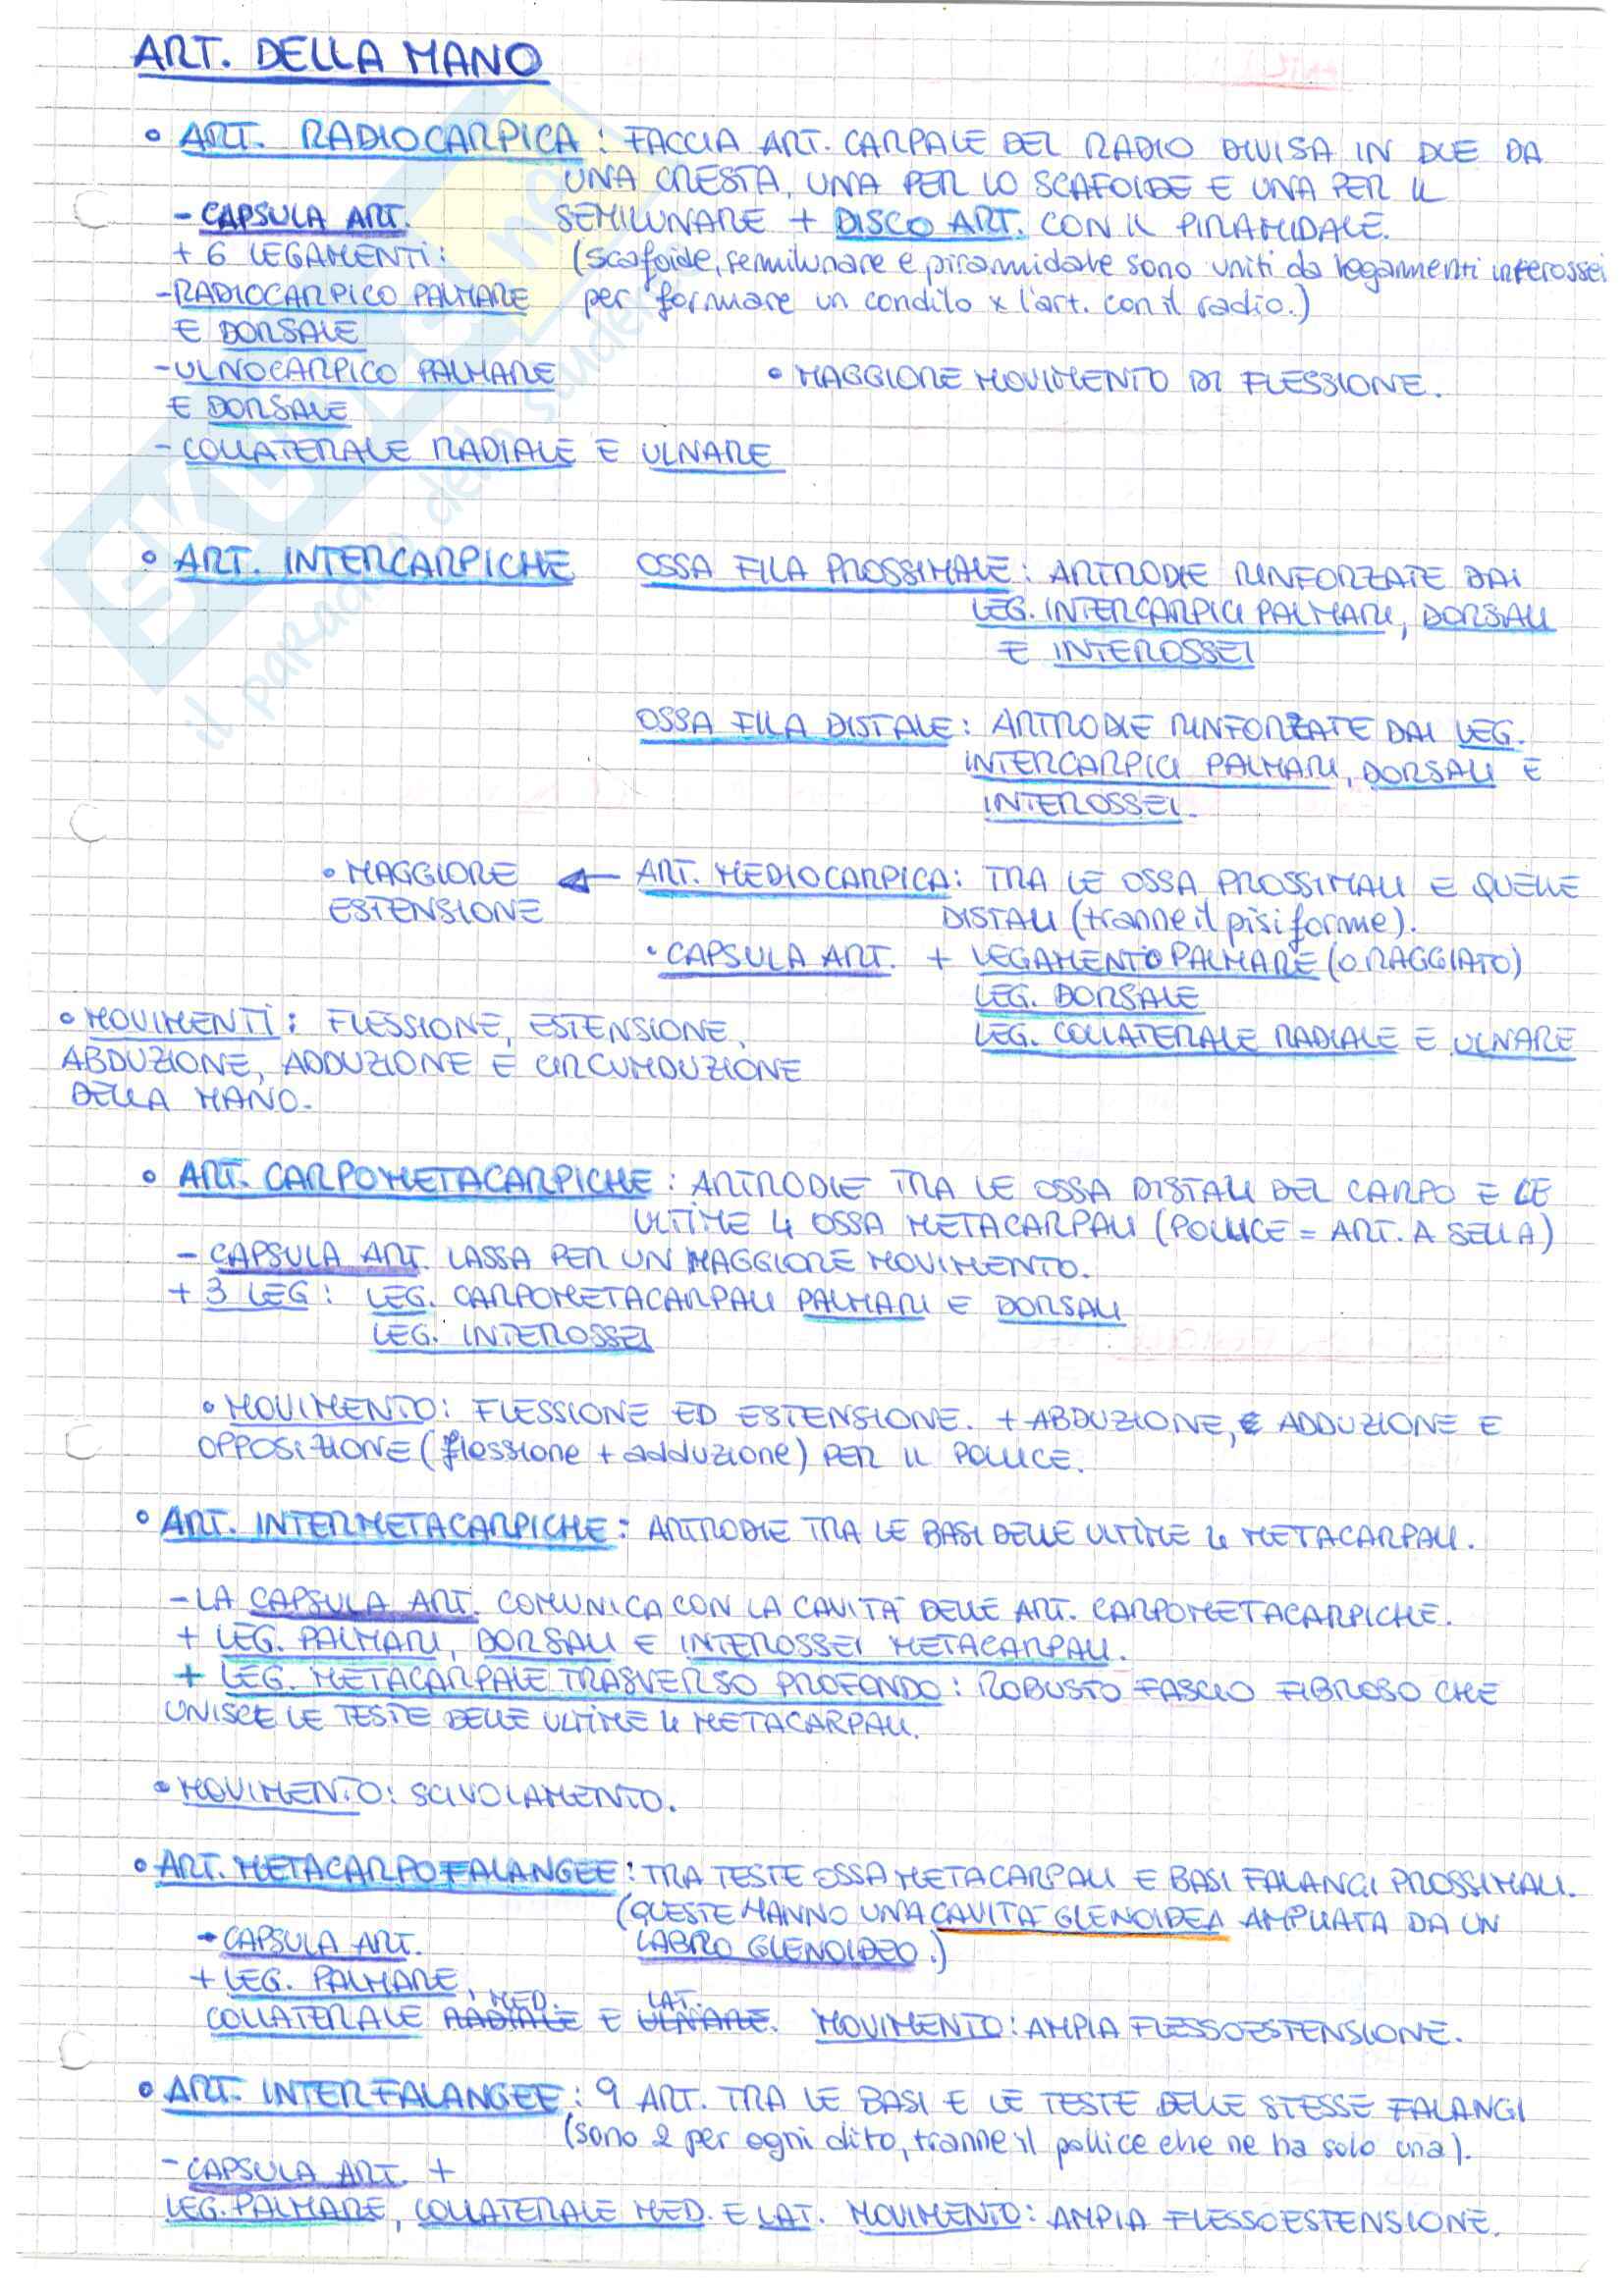 ART. DELLA MANO
• ART. RADIOCARPICA : FACCIA ART. CARPALE DEL RADIO DIVISA IN DUE DA
UNA CRESTA, UNA PER LO SCAFOIDE E UNA PER IL
- CAPSULA ART. SEMILUNARE + DISCO ART. CON IL PIRAMIDALE.
+ 6 LEGAMENTI: (scafoide, semilunare e piramidale sono uniti da legamenti interossei
- RADIOCARPICO PALMARE per formare un condilo x l'art. con il radio.)
E DORSALE
- ULNOCARPICO PALMARE • MAGGIORE MOVIMENTO DI FLESSIONE.
E DORSALE
- COLLATERALE RADIALE E ULNARE
• ART. INTERCARPICHE OSSA FILA PROSSIMALE : ARTRODIE RINFORZATE DAI
LEG. INTERCARPICI PALMARI, DORSALI
E INTEROSSEI
OSSA FILA DISTALE : ARTRODIE RINFORZATE DAI LEG.
INTERCARPICI PALMARI, DORSALI E
INTEROSSEI.
• MAGGIORE ← ART. MEDIOCARPICA: TRA LE OSSA PROSSIMALI E QUELLE
ESTENSIONE DISTALI (tranne il pisiforme).
• CAPSULA ART. + LEGAMENTO PALMARE (O RAGGIATO)
LEG. DORSALE
• MOVIMENTI : FLESSIONE, ESTENSIONE, LEG. COLLATERALE RADIALE E ULNARE
ABDUZIONE, ADDUZIONE E CIRCUMDUZIONE
DELLA MANO.
• ART. CARPOMETACARPICHE : ARTRODIE TRA LE OSSA DISTALI DEL CARPO E LE
ULTIME 4 OSSA METACARPALI (POLLICE = ART. A SELLA)
- CAPSULA ART. LASSA PER UN MAGGIORE MOVIMENTO.
+ 3 LEG : LEG. CARPOMETACARPALI PALMARI E DORSALI
LEG. INTEROSSEI
• MOVIMENTO: FLESSIONE ED ESTENSIONE. + ABDUZIONE, ADDUZIONE E
OPPOSIZIONE (flessione + adduzione) PER IL POLLICE.
• ART. INTERMETACARPICHE : ARTRODIE TRA LE BASI DELLE ULTIME 4 METACARPALI.
- LA CAPSULA ART. COMUNICA CON LA CAVITÀ DELLE ART. CARPOMETACARPICHE.
+ LEG. PALMARI, DORSALI E INTEROSSEI METACARPALI.
+ LEG. METACARPALE TRASVERSO PROFONDO : ROBUSTO FASCIO FIBROSO CHE
UNISCE LE TESTE DELLE ULTIME 4 METACARPALI.
• MOVIMENTO: SCIVOLAMENTO.
• ART. METACARPOFALANGEE : TRA TESTE OSSA METACARPALI E BASI FALANGI PROSSIMALI.
(QUESTE HANNO UNA CAVITÀ GLENOIDEA AMPLIATA DA UN
- CAPSULA ART. LABRO GLENOIDEO.)
+ LEG. PALMARE, MED. LAT.
COLLATERALE RADIALE E ULNARE. MOVIMENTO: AMPIA FLESSOESTENSIONE.
• ART. INTERFALANGEE : 9 ART. TRA LE BASI E LE TESTE DELLE STESSE FALANGI
(sono 2 per ogni dito, tranne il pollice che ne ha solo una).
- CAPSULA ART. +
LEG. PALMARE, COLLATERALE MED. E LAT. MOVIMENTO: AMPIA FLESSOESTENSIONE.